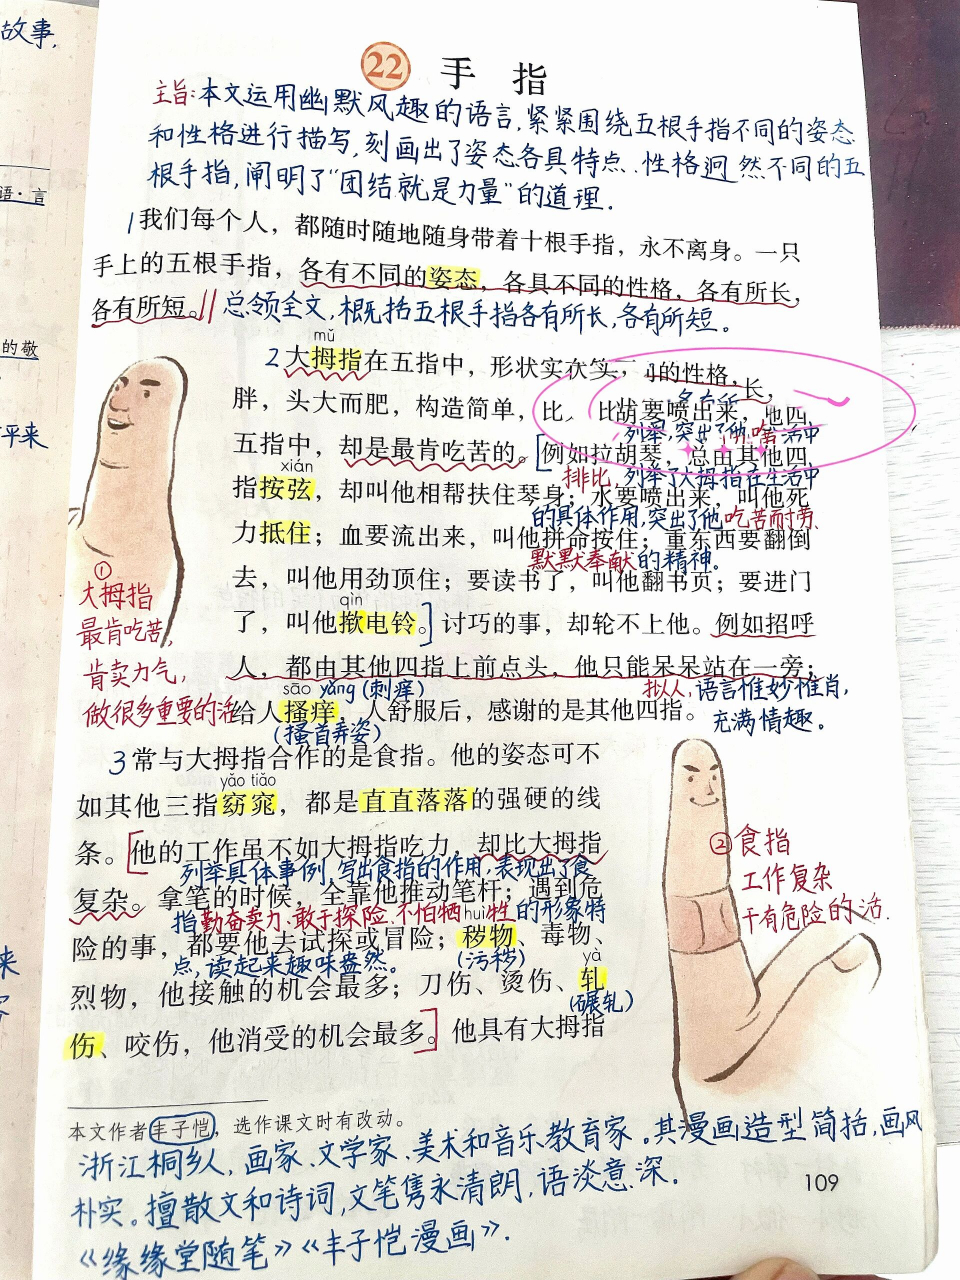 故事,
语·言
的敬
平来
来
22 手 指
主旨:本文运用幽默风趣的语言,紧紧围绕五根手指不同的姿态
和性格进行描写,刻画出了姿态各具特点、性格迥然不同的五
根手指,阐明了"团结就是力量"的道理.
1我们每个人,都随时随地随身带着十根手指,永不离身。一只
手上的五根手指,各有不同的姿态,各具不同的性格,各有所长,
各有所短。||总领全文,概括五根手指各有所长,各有所短。
mǔ
2大拇指在五指中,形状实在算 的性格,
各有所长,
胖,头大而肥,构造简单,比 比胡要喷出来,他四
列举,突出了他 啥活中
五指中,却是最肯吃苦的。[例如拉胡琴,总由其他四
xián
排比,列举了大拇指在生活中
指按弦,却叫他相帮扶住琴身;水要喷出来,叫他死
的具体作用,突出了他吃苦耐劳、
力抵住;血要流出来,叫他拼命按住;重东西要翻倒
默默奉献的精神。
去,叫他用劲顶住;要读书了,叫他翻书页;要进门
qìn
了,叫他揿电铃。]讨巧的事,却轮不上他。例如招呼
人,都由其他四指上前点头,他只能呆呆站在一旁;
sāo yǎng(刺痒)
拟人,语言惟妙惟肖,
给人搔痒,人舒服后,感谢的是其他四指。
充满情趣。
(搔首弄姿)
①
大拇指
最肯吃苦,
肯卖力气,
做很多重要的活
3常与大拇指合作的是食指。他的姿态可不
yǎo tiǎo
如其他三指窈窕,都是直直落落的强硬的线
条。[他的工作虽不如大拇指吃力,却比大拇指
列举具体事例,写出食指的作用,表现出了食
复杂。拿笔的时候,全靠他推动笔杆;遇到危
指勤奋卖力、敢于探险、不怕牺牲的形象特
huì
险的事,都要他去试探或冒险;秽物、毒物、
点,读起来趣味盎然。
(污秽)
yà
烈物,他接触的机会最多;刀伤、烫伤、轧
(碾轧)
伤、咬伤,他消受的机会最多。]他具有大拇指
②食指
工作复杂
干有危险的活.
本文作者丰子恺,选作课文时有改动。
浙江桐乡人,画家、文学家、美术和音乐教育家。其漫画造型简括,画风
朴实。擅散文和诗词,文笔隽永清朗,语淡意深.
《缘缘堂随笔》《丰子恺漫画》.
109